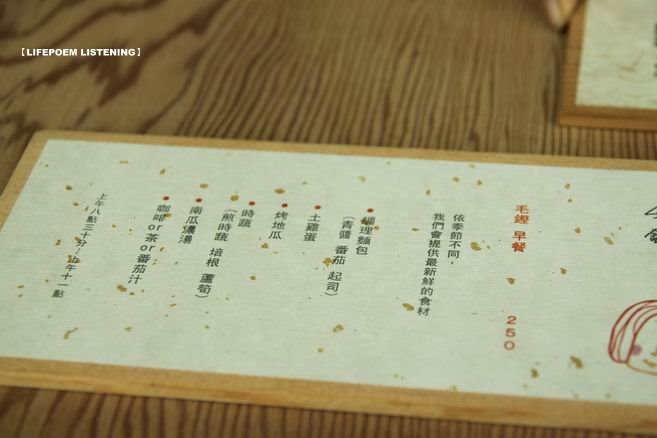 【LIFEPOEM LISTENING】
毛鏗 早餐 250
依季節不同，
我們會提供最新鮮的食材
調理麵包
（青醬 番茄 起司）
土雞蛋
烤地瓜
時蔬
（煎時蔬 培根 蘆筍）
南瓜濃湯
咖啡or茶or番茄汁
上午八點三十分~上午十一點